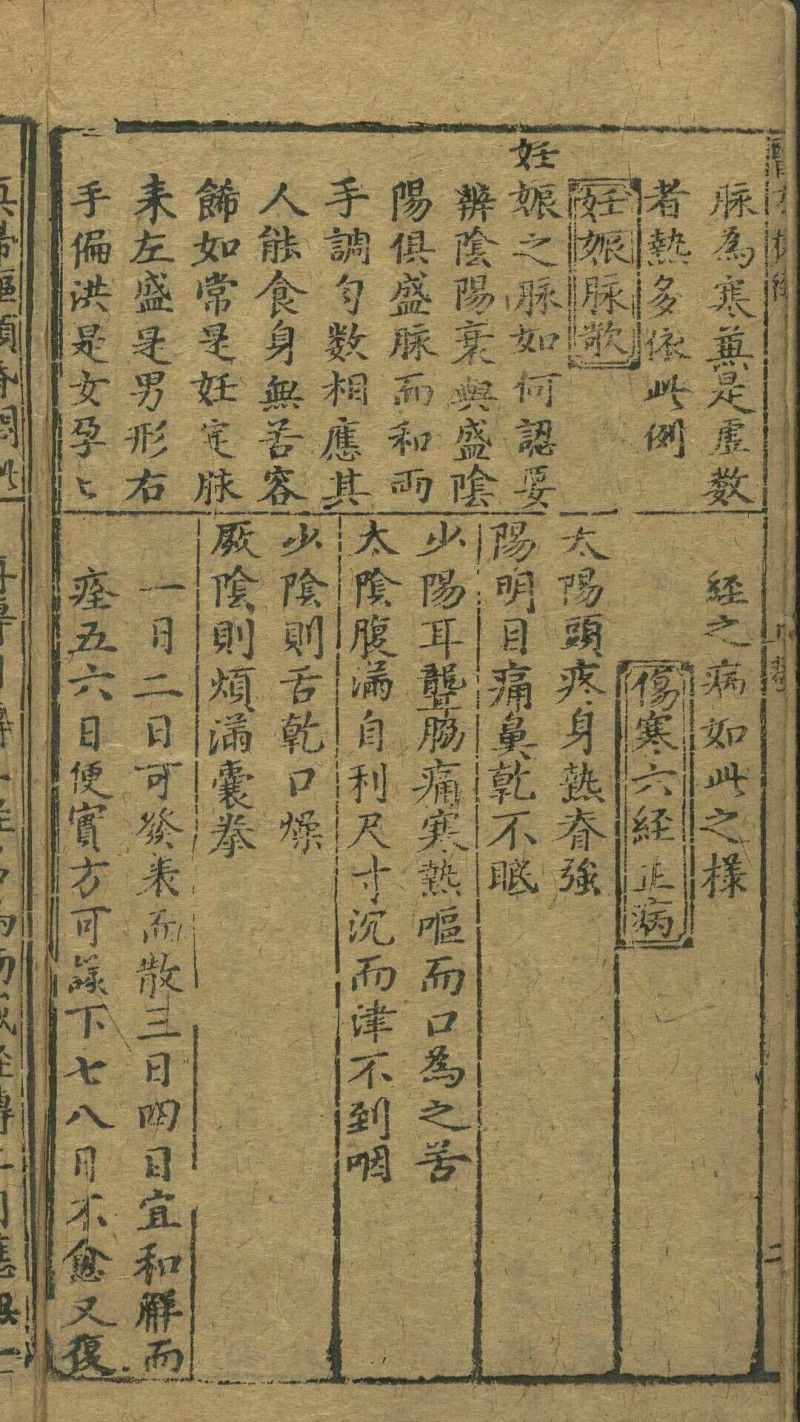 脉為寒兼是虛数
者熱多依此例
妊娠脉歌
妊娠之脉如何認要
辨陰陽衰與盛陰
陽俱盛脉而和兩
手調匀数相應其
人能食身無苦容
餙如常是妊定脉
来左盛是男形右
手偏洪是女孕〻
経之病如此之様
傷寒六経正病
太陽頭疼身熱脊強
陽明目痛鼻乾不眠
少陽耳聾脇痛寒熱嘔而口為之苦
太陰腹满自利尺寸沉而津不到咽
少陰則舌乾口燥
厥陰則煩满囊拳
一日二日可發表而散三日四日宜和解而
痊五六日便實方可議下七八日不愈又復